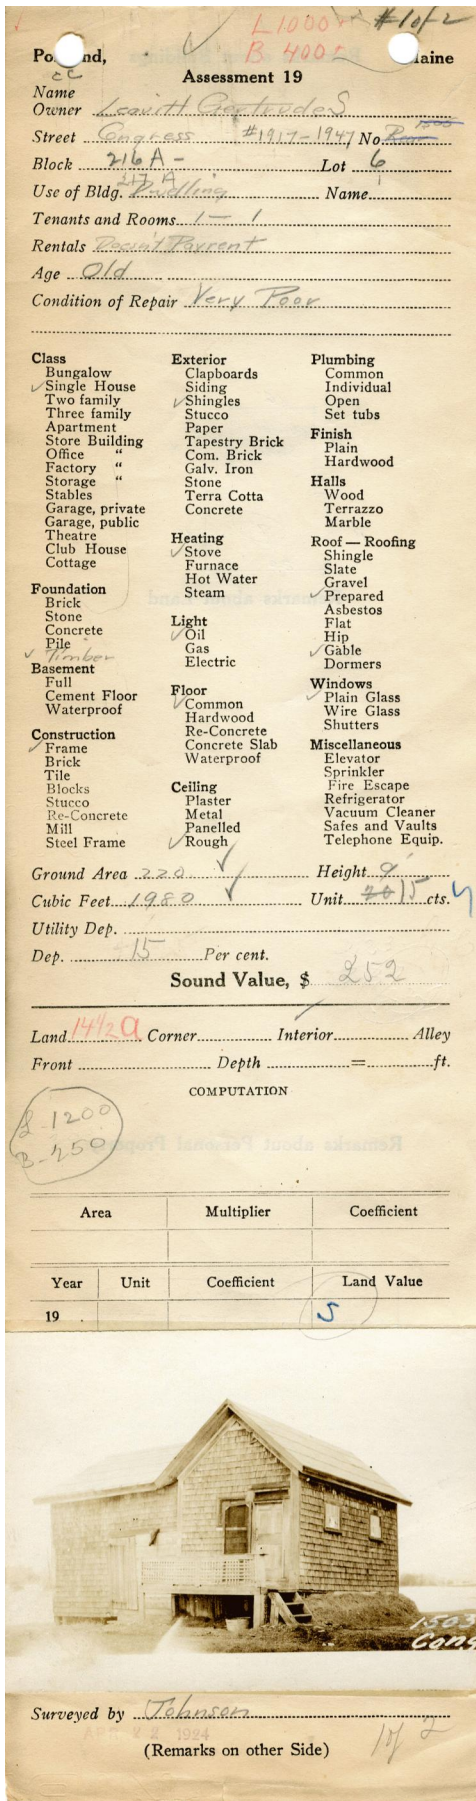 L 1000 #1 of 2
B 400
Po nd, aine
cc
Assessment 19
Name
Owner Leavitt Gertrude S
Street Congress #1917-1947 No. Rear 1503
Block 216 A - Lot 6
217 A 1
Use of Bldg. Dwelling Name
Tenants and Rooms 1 - 1
Rentals Doesn't Pay rent
Age Old
Condition of Repair Very Poor
Class
Bungalow
✓Single House
Two family
Three family
Apartment
Store Building
Office "
Factory "
Storage "
Stables
Garage, private
Garage, public
Theatre
Club House
Cottage
Foundation
Brick
Stone
Concrete
Pile
✓ Timber
Basement
Full
Cement Floor
Waterproof
Construction
✓Frame
Brick
Tile
Blocks
Stucco
Re-Concrete
Mill
Steel Frame
Exterior
Clapboards
Siding
✓Shingles
Stucco
Paper
Tapestry Brick
Com. Brick
Galv. Iron
Stone
Terra Cotta
Concrete
Heating
✓Stove
Furnace
Hot Water
Steam
Light
✓Oil
Gas
Electric
Floor
✓Common
Hardwood
Re-Concrete
Concrete Slab
Waterproof
Ceiling
Plaster
Metal
Panelled
✓Rough
Plumbing
Common
Individual
Open
Set tubs
Finish
Plain
Hardwood
Halls
Wood
Terrazzo
Marble
Roof — Roofing
Shingle
Slate
Gravel
✓Prepared
Asbestos
Flat
Hip
✓Gable
Dormers
Windows
✓Plain Glass
Wire Glass
Shutters
Miscellaneous
Elevator
Sprinkler
Fire Escape
Refrigerator
Vacuum Cleaner
Safes and Vaults
Telephone Equip.
Ground Area 220 ✓ Height 9'
Cubic Feet 1980 ✓ Unit 20 15 cts.
Utility Dep.
Dep. 15 Per cent.
Sound Value, $ 252
Land 14 1/2 a Corner Interior Alley
Front Depth = ft.
COMPUTATION
L-1200
B-250
Area Multiplier Coefficient
Year Unit Coefficient Land Value
19 5
1503
Cong
Surveyed by Johnson
APR 22 1924
(Remarks on other Side) 1 of 2